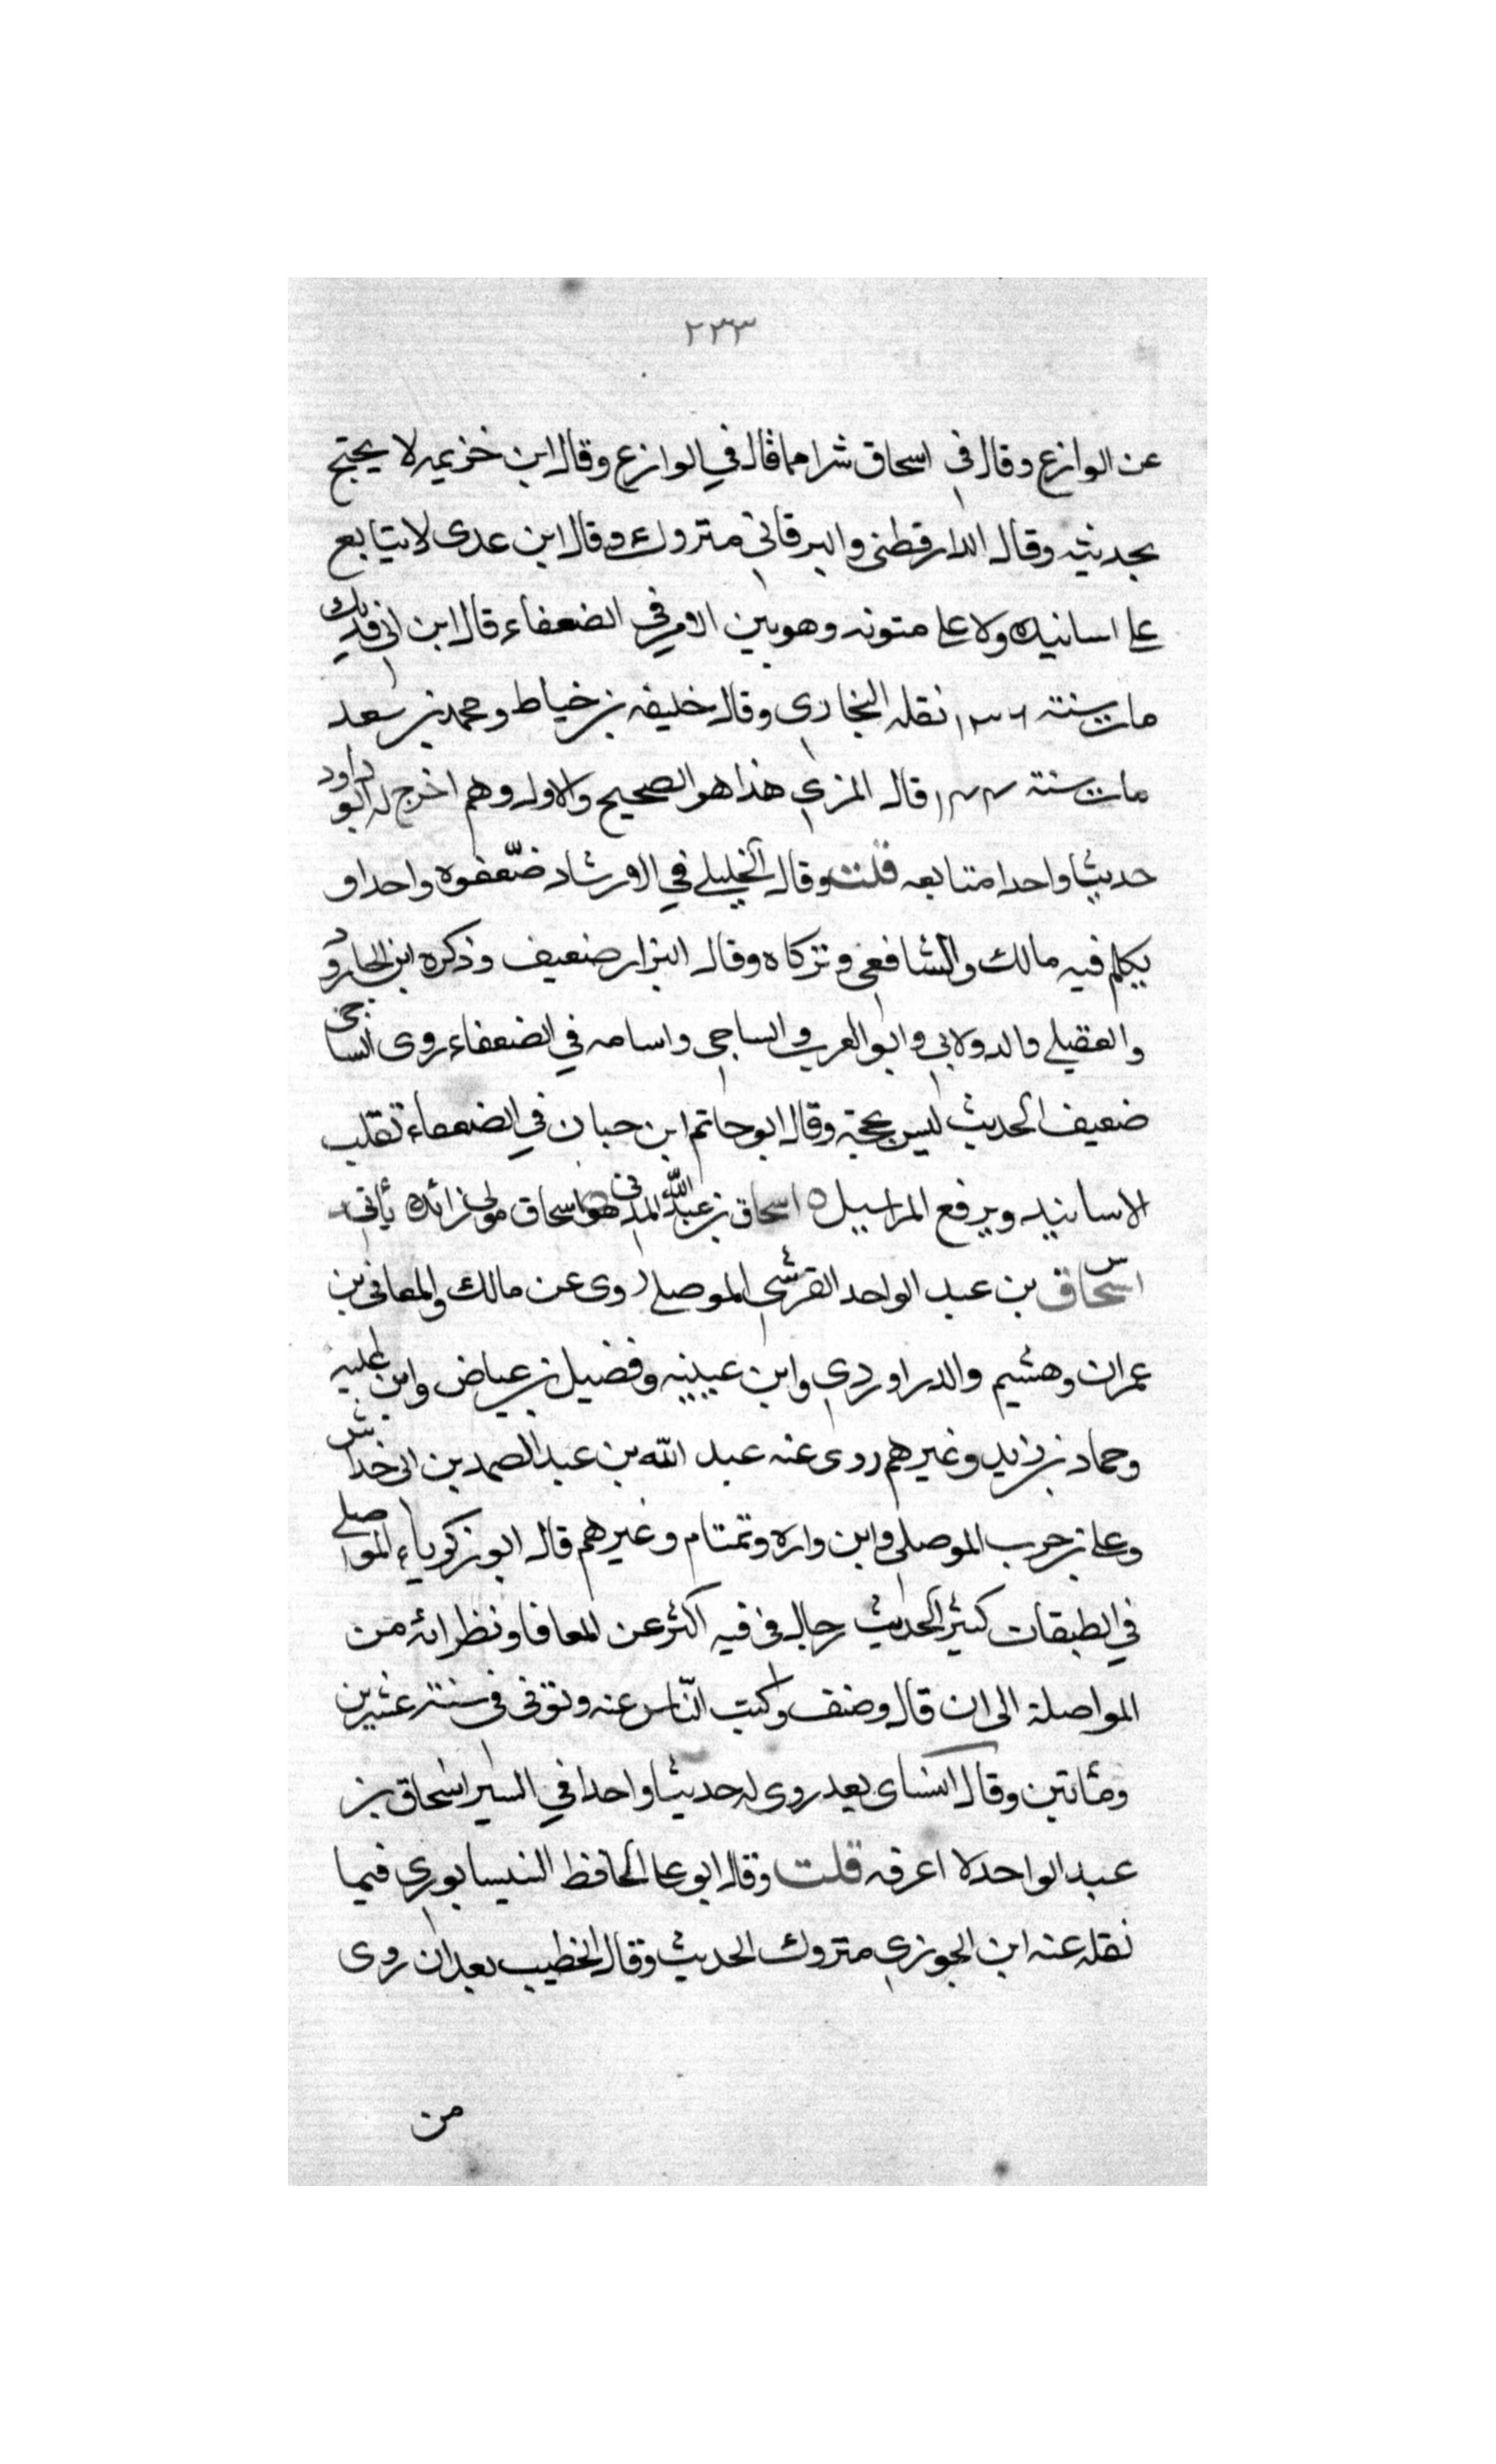 ٢٣٣
عن الوازع وقال في اسحاق شرا مما قال في الوازع وقال ابن خزيمه لا يحتج
بحديثه وقال الدارقطنى والبرقاني متروك وقال ابن عدى لا يتابع
على اسانيده ولا على متونه وهو بين الامر في الضعفاء قال ابن ابي فديك
مات سنته ١٣٦ نقله البخارى وقال خليفه بن خياط ومحمد بن سعد
مات سنته ١٤٤ قال المزي هذا هو الصحيح والاول وهم اخرج له ابو داود
حديثا واحدا متابعه قلت وقال الخليلي في الارشاد ضعّفوه واحدا و
يكلم فيه مالك والشافعي وتركاه وقال البزار ضعيف وذكره ابن الجارود
والعقيلي والدولابي وابو العرب والساجى واسامه في الضعفاء روى الساجي
ضعيف الحديث ليس بحجة وقال ابو حاتم ابن حبان في الضعفاء تقلب
الاسانيد ويرفع المراسيل ه اسحاق بن عبد الله المدنى هو اسحاق مولى زائده يأتي
س
اسحاق بن عبد الواحد القرشي الموصلي روى عن مالك والمعافى بن
عمران وهشيم والدراوردي وابن عيينه وفضيل بن عياض وابن عليه
وحماد بن زيد وغيرهم روى عنه عبد الله بن عبد الصمد بن ابى خداش
وعلى بن حرب الموصلي وابن واره وتمتام وغيرهم قال ابو زكرياء الموصلي
في الطبقات كثير الحديث رحال فى فيه اكثر عن المعافا ونظرائه من
المواصلة الى ان قال وصنف وكتب النّاس عنه وتوفى فى سنته عشرين
ومئاتين وقال النساى بعد روى له حديثا واحدا في السير اسحاق بن
عبد الواحد لا اعرفه قلت وقال ابو على الحافظ النيسابوري فيما
نقله عنه ابن الجوزي متروك الحديث وقال الخطيب بعد ان روى
من